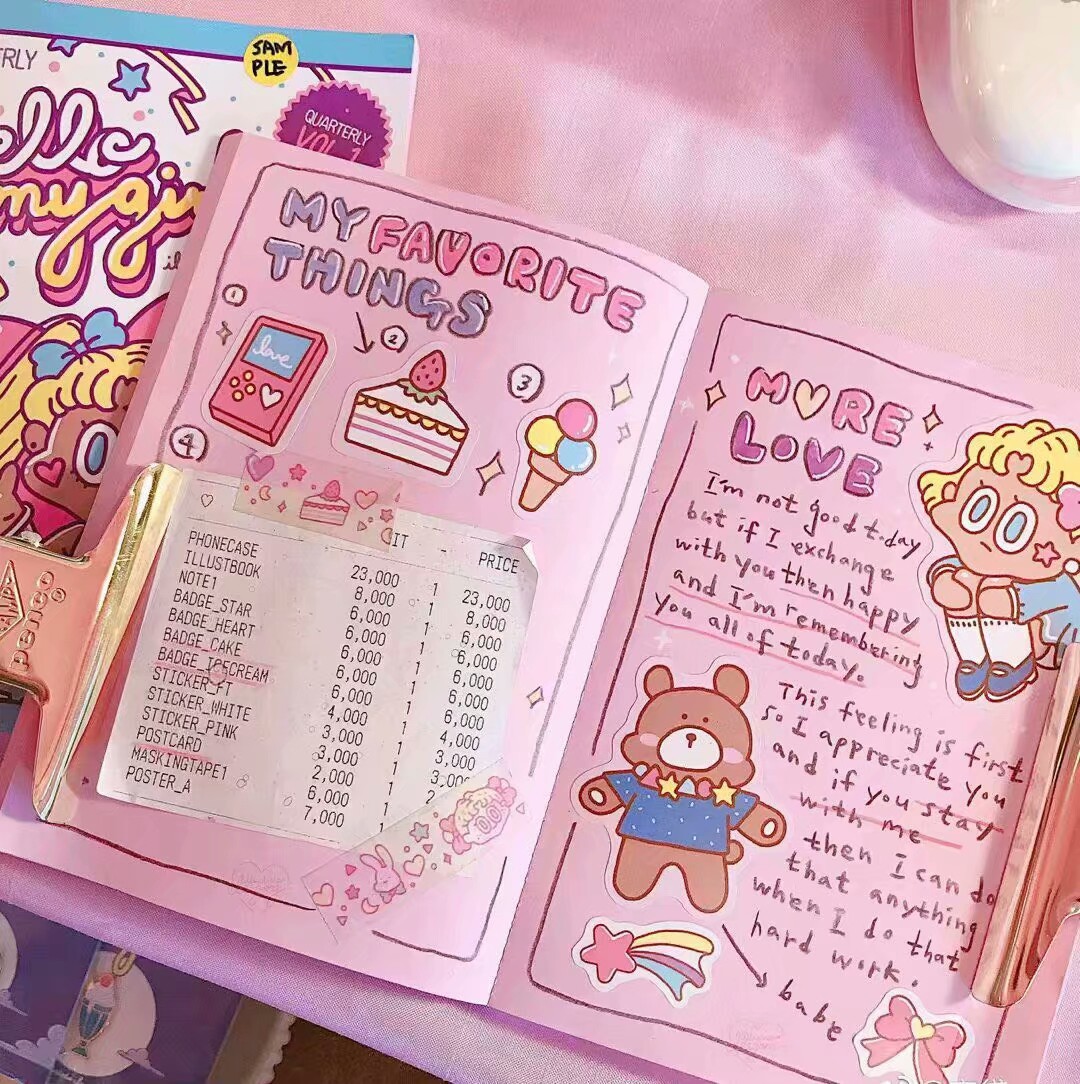 SAM
PLE
QUARTERLY
VOL.1
my
MY FAVORITE
THINGS
1
2
3
4
love
IT - PRICE
PHONECASE 23,000 1 23,000
ILLUSTBOOK 8,000 1 8,000
NOTE1 6,000 1 6,000
BADGE_STAR 6,000 1 6,000
BADGE_HEART 6,000 1 6,000
BADGE_CAKE 6,000 1 6,000
BADGE_ICECREAM 6,000 1 6,000
STICKER_FT 4,000 1 4,000
STICKER_WHITE 3,000 1 3,000
STICKER_PINK 3,000 1
POSTCARD 2,000 1
MASKINGTAPE1 6,000 1
POSTER_A 7,000 1
penco
MORE
LOVE
I'm not good today
but if I exchange
with you then happy
and I'm remembering
you all of today.
This feeling is first
so I appreciate you
and if you stay
with me
then I can do
that anything
when I do that
hard work.
babe